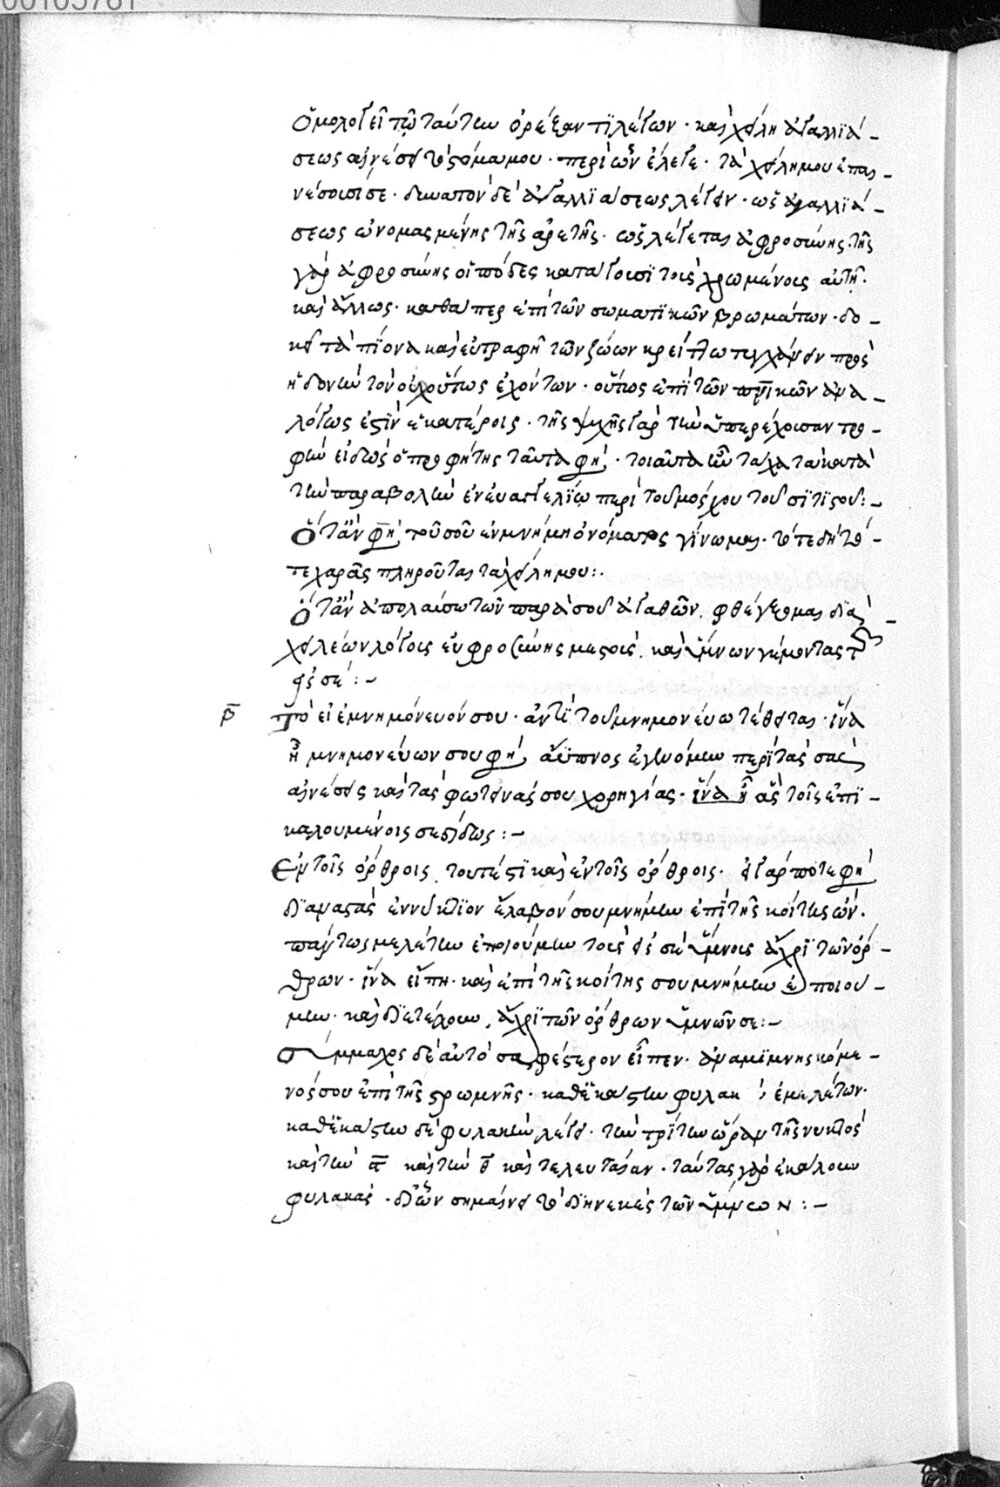 00105781
Ὁμολογεῖ τῶ ταύτην ὀρέξαντι λέγων· καὶ χείλη ἀγαλλιά-
σεως αἰνέσει τὸ στόμα μου· περὶ ὧν ἔλεγε· τὰ χείλη μου ἐπαι-
νέσουσί σε· δυνατὸν δὲ ἀγαλλιάσεως λέγειν· ὡς ἀγαλλιά-
σεως ὠνομασμένης τῆς ἀρετῆς· ὡς λέγεται ἀφροσύνης· τῆς
γὰρ ἀφροσύνης οἱ πόδες κατάγουσι τοὺς χρωμένοις αὐτῆ·
καὶ ἄλλως· καθάπερ ἐπὶ τῶν σωματικῶν βρωμάτων· δο-
κεῖ τὰ πίονα καὶ εὐτραφῆ τῶν ζώων κρείττω τυγχάνειν πρὸς
ἡδονὴν τῶν οὐχ οὕτως ἐχόντων· οὕτως ἐπὶ τῶν πνικῶν ἀνα-
λόγως ἐστὶν ἑκατέροις· τῆς ψυχῆς γὰρ τὴν ὑπερέχουσαν τρο-
φὴν εἰδὼς ὁ προφήτης ταῦτα φησί· τοιαῦτα οὖν τάχα τὰ κατὰ
τὴν παραβολὴν ἐν εὐαγγελίω περὶ τοῦ μόσχου τοῦ σιτιστοῦ:-
Ὅταν φησί τοῦ σοῦ ἐν μνήμη ὀνόματος γίνωμαι· τότε δὴ τό-
τε χαρᾶς πληροῦται τὰ χείλη μου:·
Ὅταν ἀπολαύσω τῶν παρὰ σοῦ ἀγαθῶν, φθέγξομαι διὰ
χειλέων λόγοις εὐφροσύνης μεστοὺς, καὶ ὕμνων γέμοντας τῶν
εἰς σέ:-
ρ τὸ εἰ ἐμνημόνευόν σου· ἀντὶ τοῦ μνημονεύω τέθειται· ἵνα
ἦ μνημονεύων σου φησί, ἄϋπνος ἐγενόμην περὶ τὰς σὰς
αἰνέσεις καὶ τὰς φωτεινάς σου χορηγίας· ἵνα ἦ ἃς τοῖς ἐπι-
καλουμένοις σε δίδως:-
Ἐν τοῖς ὄρθροις, τουτέστι καὶ ἐν τοῖς ὄρθροις· εἰ γάρ ποτε φησί
διαναστὰς ἐννύκτιον ἔλαβόν σου μνήμην ἐπὶ τῆς κοίτης ὤν·
πάντως μελέτην ἐποιούμην τοὺς εἰς σὲ ὕμνοις ἄχρι τῶν ὄρ-
θρων· ἵνα εἴπη· καὶ ἐπὶ τῆς κοίτης σου μνήμην ἐποιού-
μην· καὶ διετέλουν, ἄχρι τῶν ὄρθρων ὑμνῶν σε:-
Σύμμαχος δὲ αὐτὸ σαφέστερον εἶπεν· ἀναμιμνησκόμε-
νός σου ἐπὶ τῆς στρωμνῆς· καθ' ἑκάστην φυλακ ἐμελέτων·
καθ' ἑκάστην δὲ φυλακὴν λέγει· τὴν τρίτην ὥραν τῆς νυκτὸς
καὶ τὴν καὶ τὴν καὶ τελευταίαν· ταύτας γὰρ ἐκάλουν
φυλακάς· δι' ὧν σημαίνει τὸ διηνεκὲς τῶν ὕμνων:-